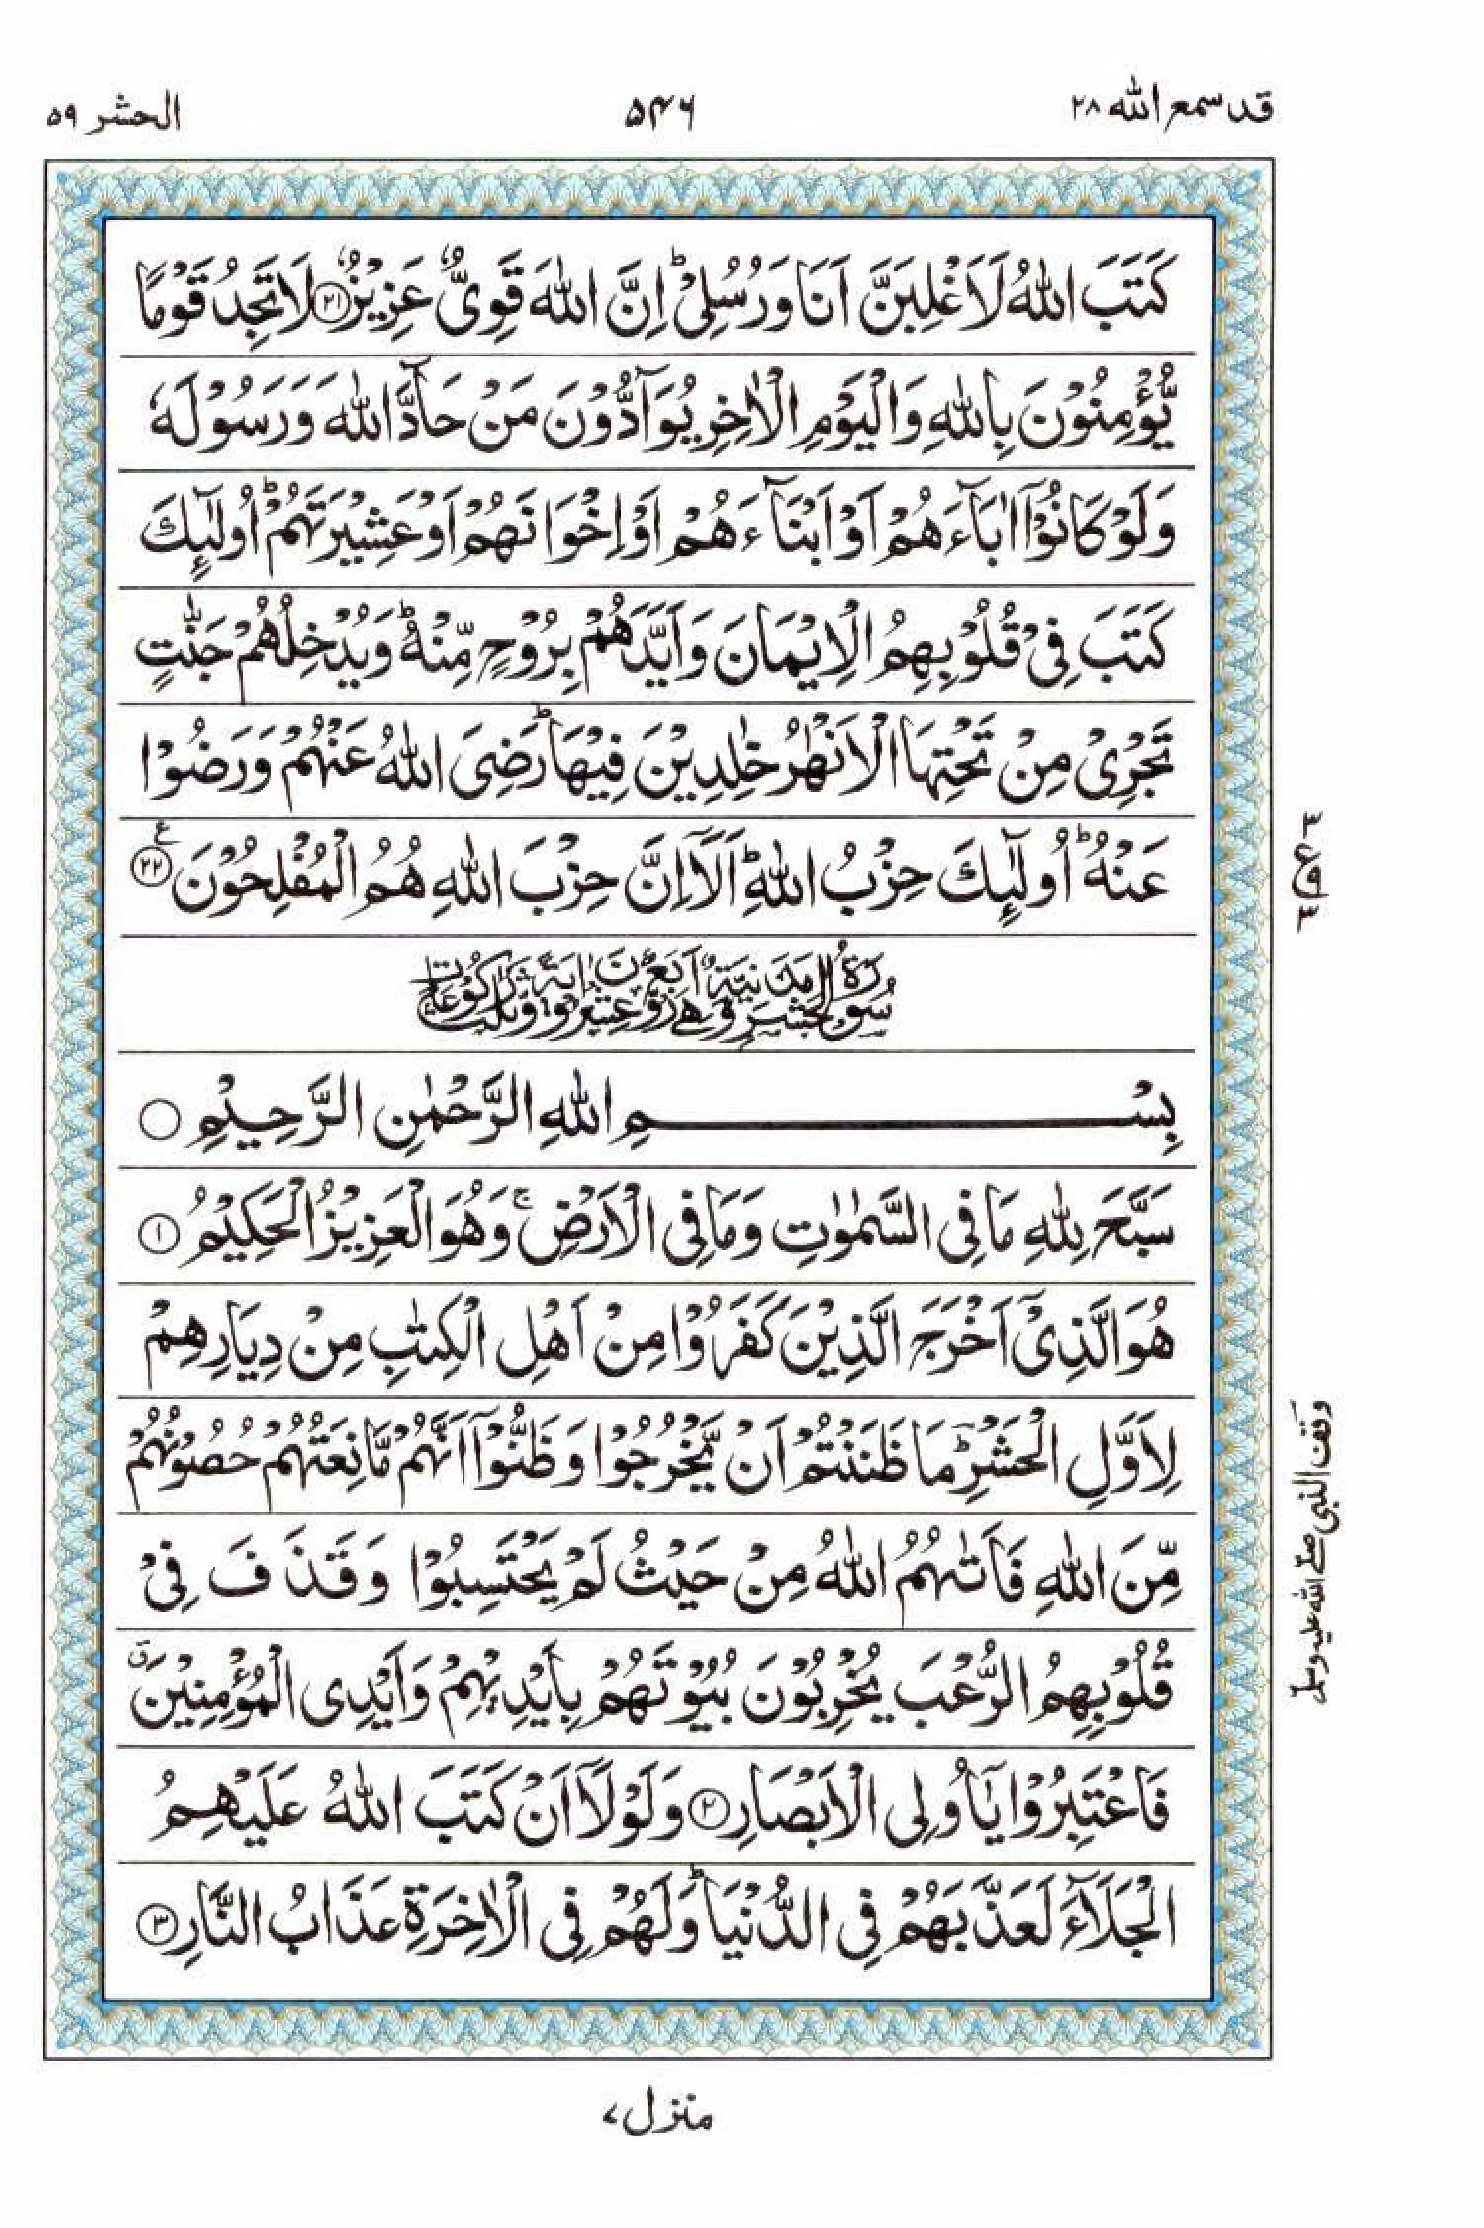 قد سمع الله ٢٨
۵۴۶
الحشر ۵۹
كَتَبَ اللّٰهُ لَاَغْلِبَنَّ اَنَا وَرُسُلِیْ ؕ اِنَّ اللّٰهَ قَوِیٌّ عَزِیْزٌ ﴿۲۱﴾ لَا تَجِدُ قَوْمًا
یُّؤْمِنُوْنَ بِاللّٰهِ وَالْیَوْمِ الْاٰخِرِ یُوَآدُّوْنَ مَنْ حَآدَّ اللّٰهَ وَرَسُوْلَهٗ
وَلَوْ كَانُوْۤا اٰبَآءَهُمْ اَوْ اَبْنَآءَهُمْ اَوْ اِخْوَانَهُمْ اَوْ عَشِیْرَتَهُمْ ؕ اُولٰٓئِكَ
كَتَبَ فِیْ قُلُوْبِهِمُ الْاِیْمَانَ وَاَیَّدَهُمْ بِرُوْحٍ مِّنْهُ ؕ وَیُدْخِلُهُمْ جَنّٰتٍ
تَجْرِیْ مِنْ تَحْتِهَا الْاَنْهٰرُ خٰلِدِیْنَ فِیْهَا ؕ رَضِیَ اللّٰهُ عَنْهُمْ وَرَضُوْا
عَنْهُ ؕ اُولٰٓئِكَ حِزْبُ اللّٰهِ ؕ اَلَاۤ اِنَّ حِزْبَ اللّٰهِ هُمُ الْمُفْلِحُوْنَ ﴿۲۲﴾ ع
سُوْرَةُ الْحَشْرِ مَدَنِیَّةٌ وَّهِیَ اَرْبَعٌ وَّعِشْرُوْنَ اٰیَةً وَّثَلٰثُ رُكُوْعَاتٍ
بِسْمِ اللّٰهِ الرَّحْمٰنِ الرَّحِیْمِ
سَبَّحَ لِلّٰهِ مَا فِی السَّمٰوٰتِ وَمَا فِی الْاَرْضِ ۚ وَهُوَ الْعَزِیْزُ الْحَكِیْمُ ﴿۱﴾
هُوَ الَّذِیْۤ اَخْرَجَ الَّذِیْنَ كَفَرُوْا مِنْ اَهْلِ الْكِتٰبِ مِنْ دِیَارِهِمْ
لِاَوَّلِ الْحَشْرِ ؕ مَا ظَنَنْتُمْ اَنْ یَّخْرُجُوْا وَظَنُّوْۤا اَنَّهُمْ مَّانِعَتُهُمْ حُصُوْنُهُمْ
مِّنَ اللّٰهِ فَاَتٰىهُمُ اللّٰهُ مِنْ حَیْثُ لَمْ یَحْتَسِبُوْا وَقَذَفَ فِیْ
قُلُوْبِهِمُ الرُّعْبَ یُخْرِبُوْنَ بُیُوْتَهُمْ بِاَیْدِیْهِمْ وَاَیْدِی الْمُؤْمِنِیْنَ ۗ
فَاعْتَبِرُوْا یٰۤاُولِی الْاَبْصَارِ ﴿۲﴾ وَلَوْلَاۤ اَنْ كَتَبَ اللّٰهُ عَلَیْهِمُ
الْجَلَآءَ لَعَذَّبَهُمْ فِی الدُّنْیَا ؕ وَلَهُمْ فِی الْاٰخِرَةِ عَذَابُ النَّارِ ﴿۳﴾
وقف النبی صلے الله علیه وسلم
منزل ۷